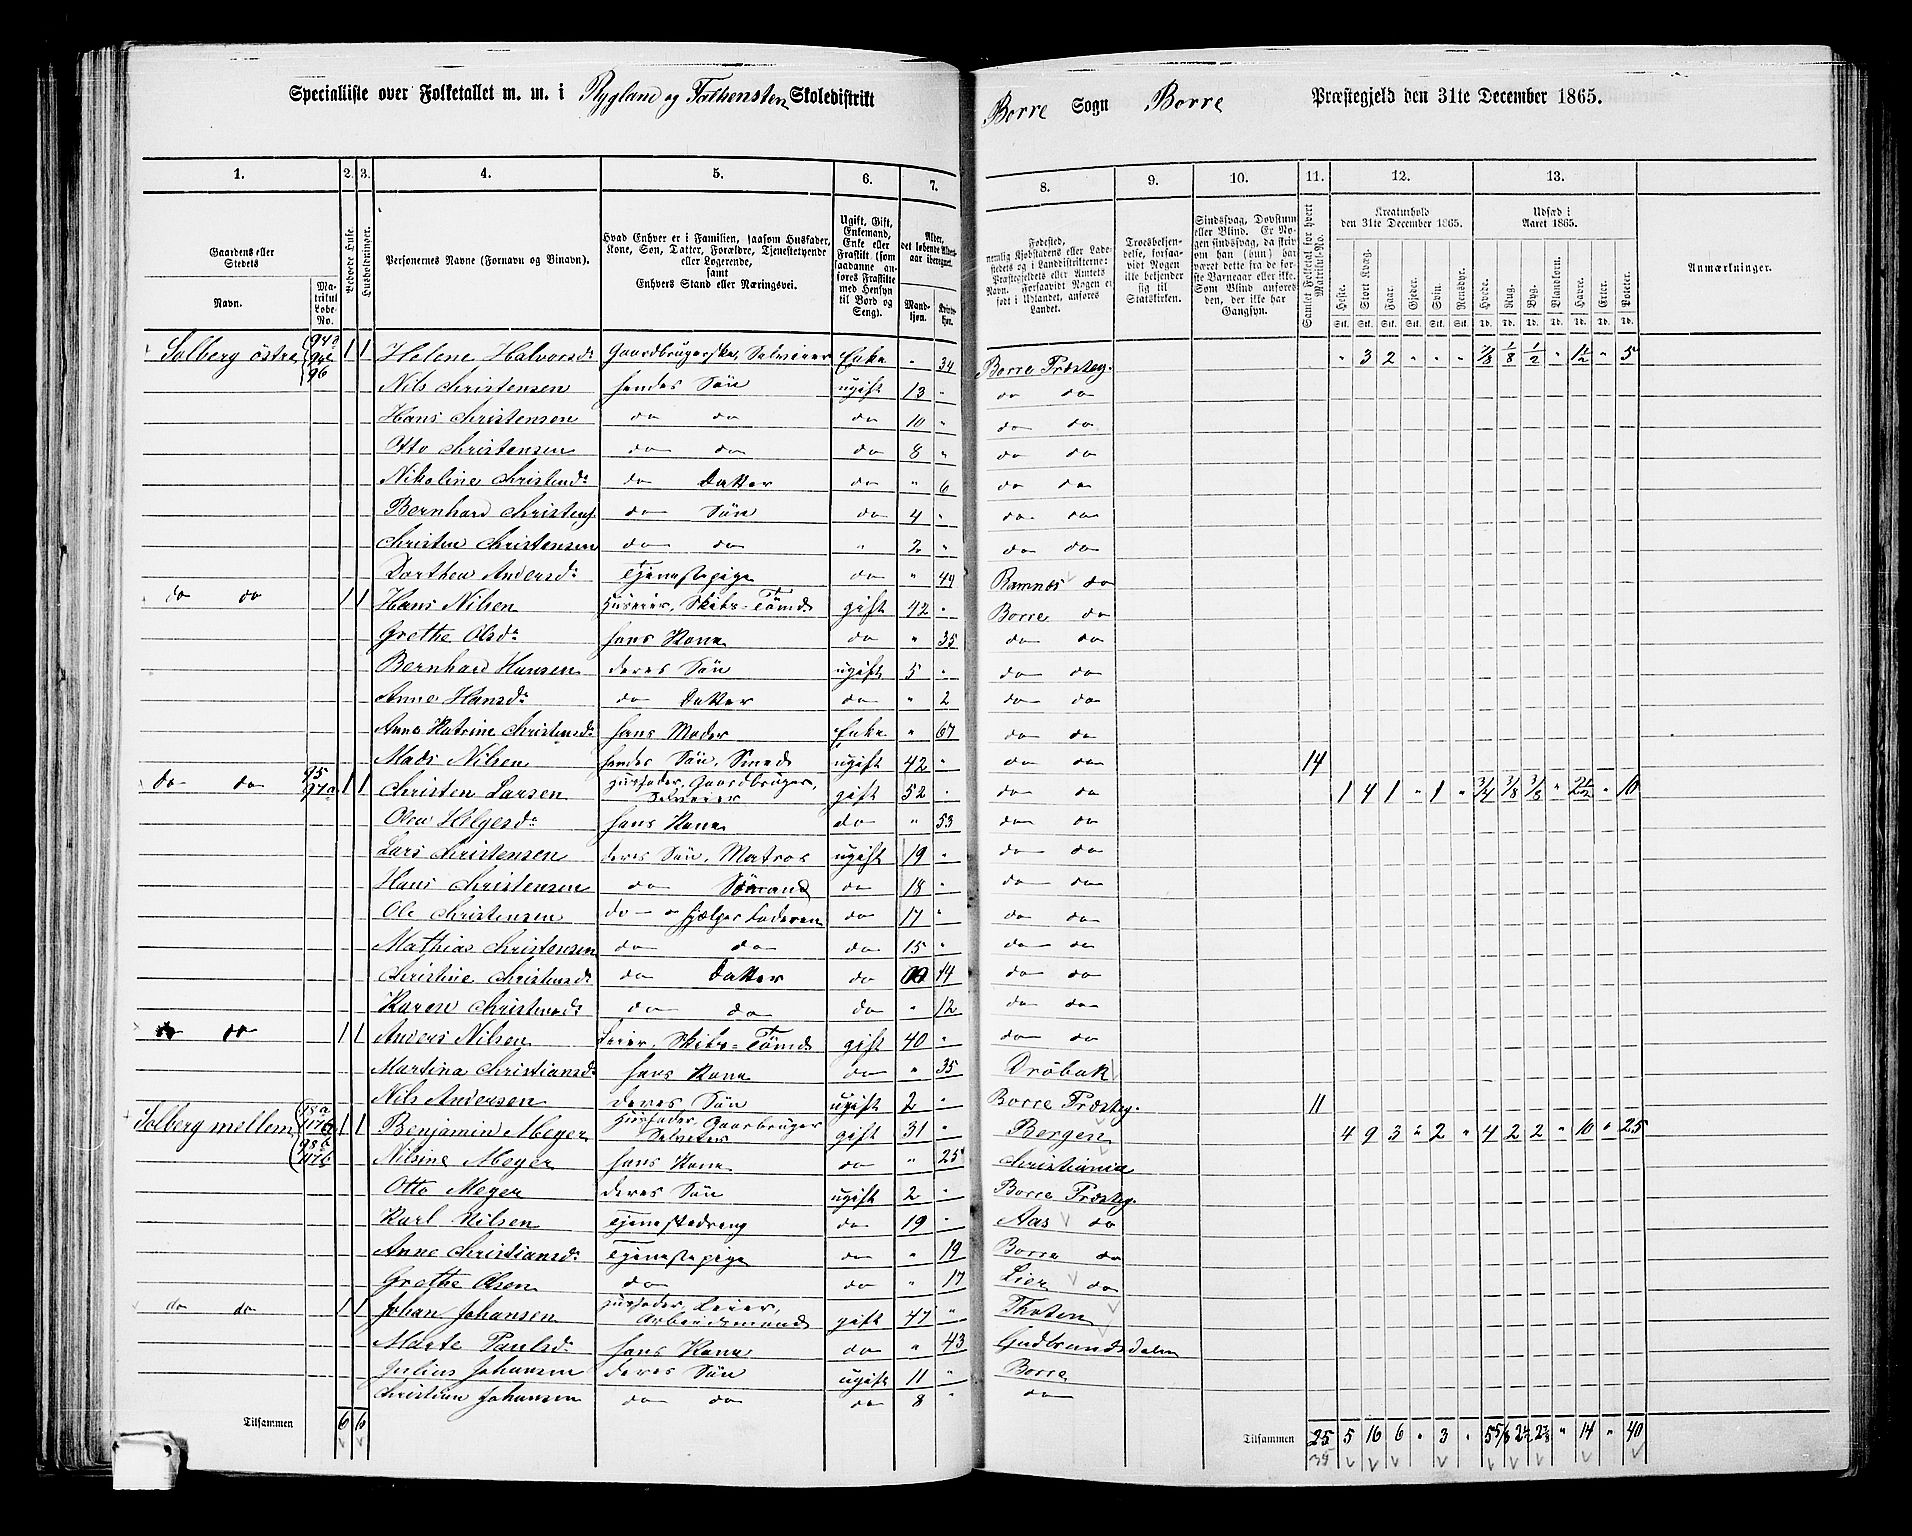 Specialliste over Folketallet m. m. i Rygland og Falkensten Skoledistrikt
Borre Sogn Borre Præstegjeld den 31te December 1865.
1. 2. 3. 4. 5. 6. 7. 8. 9. 10. 11. 12. 13.
Gaardens eller Stedets
Navn.
Matrikul Løbe-No.
Beboede Huse.
Huusholdninger.
Personernes Navne (Fornavn og Tilnavn).
Hvad Enhver er i Familien, saasom Husfader, Kone, Søn, Datter, Forældre, Tjenestetyende eller Logerende, samt Enhvers Stand eller Næringsvei.
Ugift, Gift, Enkemand, Enke eller Fraskilt (saadanne anføres Fraskilte med Hensyn til Bord og Seng).
Alder, det løbende Alders-aar iberegnet.
Mandkjøn. Kvindekjøn.
Fødested, nemlig Kjøbstadens eller Ladestedets eller i Landdistrikterne: Præstegjeldets eller Annexets Navn. Forsaavidt Nogen er født i Udlandet, anføres Landet.
Troesbekjendelse, forsaavidt Nogen ikke bekjender sig til Statskirken.
Sindssvag, Døvstum eller Blind.
Samlet Folketal for hvert Matrikul-No.
Kreaturhold den 31te December 1865.
Heste. Stort Kvæg. Faar. Gjeder. Svin. Rensdyr.
Udsæd i Aaret 1865.
Hvede. Rug. Byg. Blandkorn. Havre. Erter. Poteter.
Anmærkninger.
Solberg østre 96 1 1 Helene Halvorsd. Gaardbrugerske, Selveier Enke " 34 Borre Præsteg. " 3 2 " " " 1/8 1/2 " " 5
Nils Christensen hendes Søn ugift 13 " do do
Hans Christensen do do do 10 " do do
Otto Christensen do do do 8 " do do
Nikoline Christend. do Datter do " 6 do do
Bernhard Christens. do Søn do 4 " do do
Christen Christensen do do " 2 " do do
Dorthea Andersd. Tjenestepige do " 44 Ramnes do
do do 1 1 Hans Nilsen Huseier, Skibs-Tømd. gift 42 " Borre do
Grethe Olsd. hans Kone do " 35 do do
Bernhard Hansen deres Søn ugift 5 " do do
Anne Hansd. do Datter do " 2 do do
Anne Katrine Christensd. hans Moder Enke " 67 do do
Mads Nilsen hendes Søn, Smed ugift 42 " do do 14
do do 95 97a 1 1 Christen Larsen Husfader, Gaardbruger, Selveier gift 52 " do do 1 4 1 " 1 " 3/4 3/8 " " 10
Olea Helgesd. hans Kone do " 53 do do
Lars Christensen deres Søn, Matros ugift 19 " do do
Hans Christensen do Sømand do 18 " do do
Ole Christensen do hjelper Faderen do 17 " do do
Mathias Christensen do do do 15 " do do
Christine Christensd. do Datter do 14 do do
Karen Christensd. do do do " 12 do do
do do 1 1 Anders Nilsen Leier, Skibs-Tømd. gift 40 " do do
Martina Christiansd. hans Kone do " 35 Drøbak
Nils Andersen deres Søn ugift 2 " Borre Præsteg. 11
Solberg mellem 1 1 Benjamin Meyer Husfader, Gaardbruger Selveier gift 31 " Bergen 4 9 3 " 2 " 4 2 2 " 10 " 25
Nilsine Meyer hans Kone do " 25 Christiania
Otto Meyer deres Søn ugift 2 " Borre Præsteg.
Karl Nilsen Tjenestedreng do 19 " Aas do
Anne Christiansd. Tjenestepige do " 19 Borre do
Grethe Olsen do do " 17 Lier do
do do 1 1 Johan Johansen Husfader, Leier, Arbeidsmand gift 47 " Thoten
Marte Paulsd. hans Kone do " 43 Gudbrandsdalen
Julius Johansen deres Søn ugift 11 " Borre
Christian Johansen do do do 8 " do
Tilsammen 6 6 Tilsammen 25 5 16 6 " 3 " 5 5/8 " 14 " 40